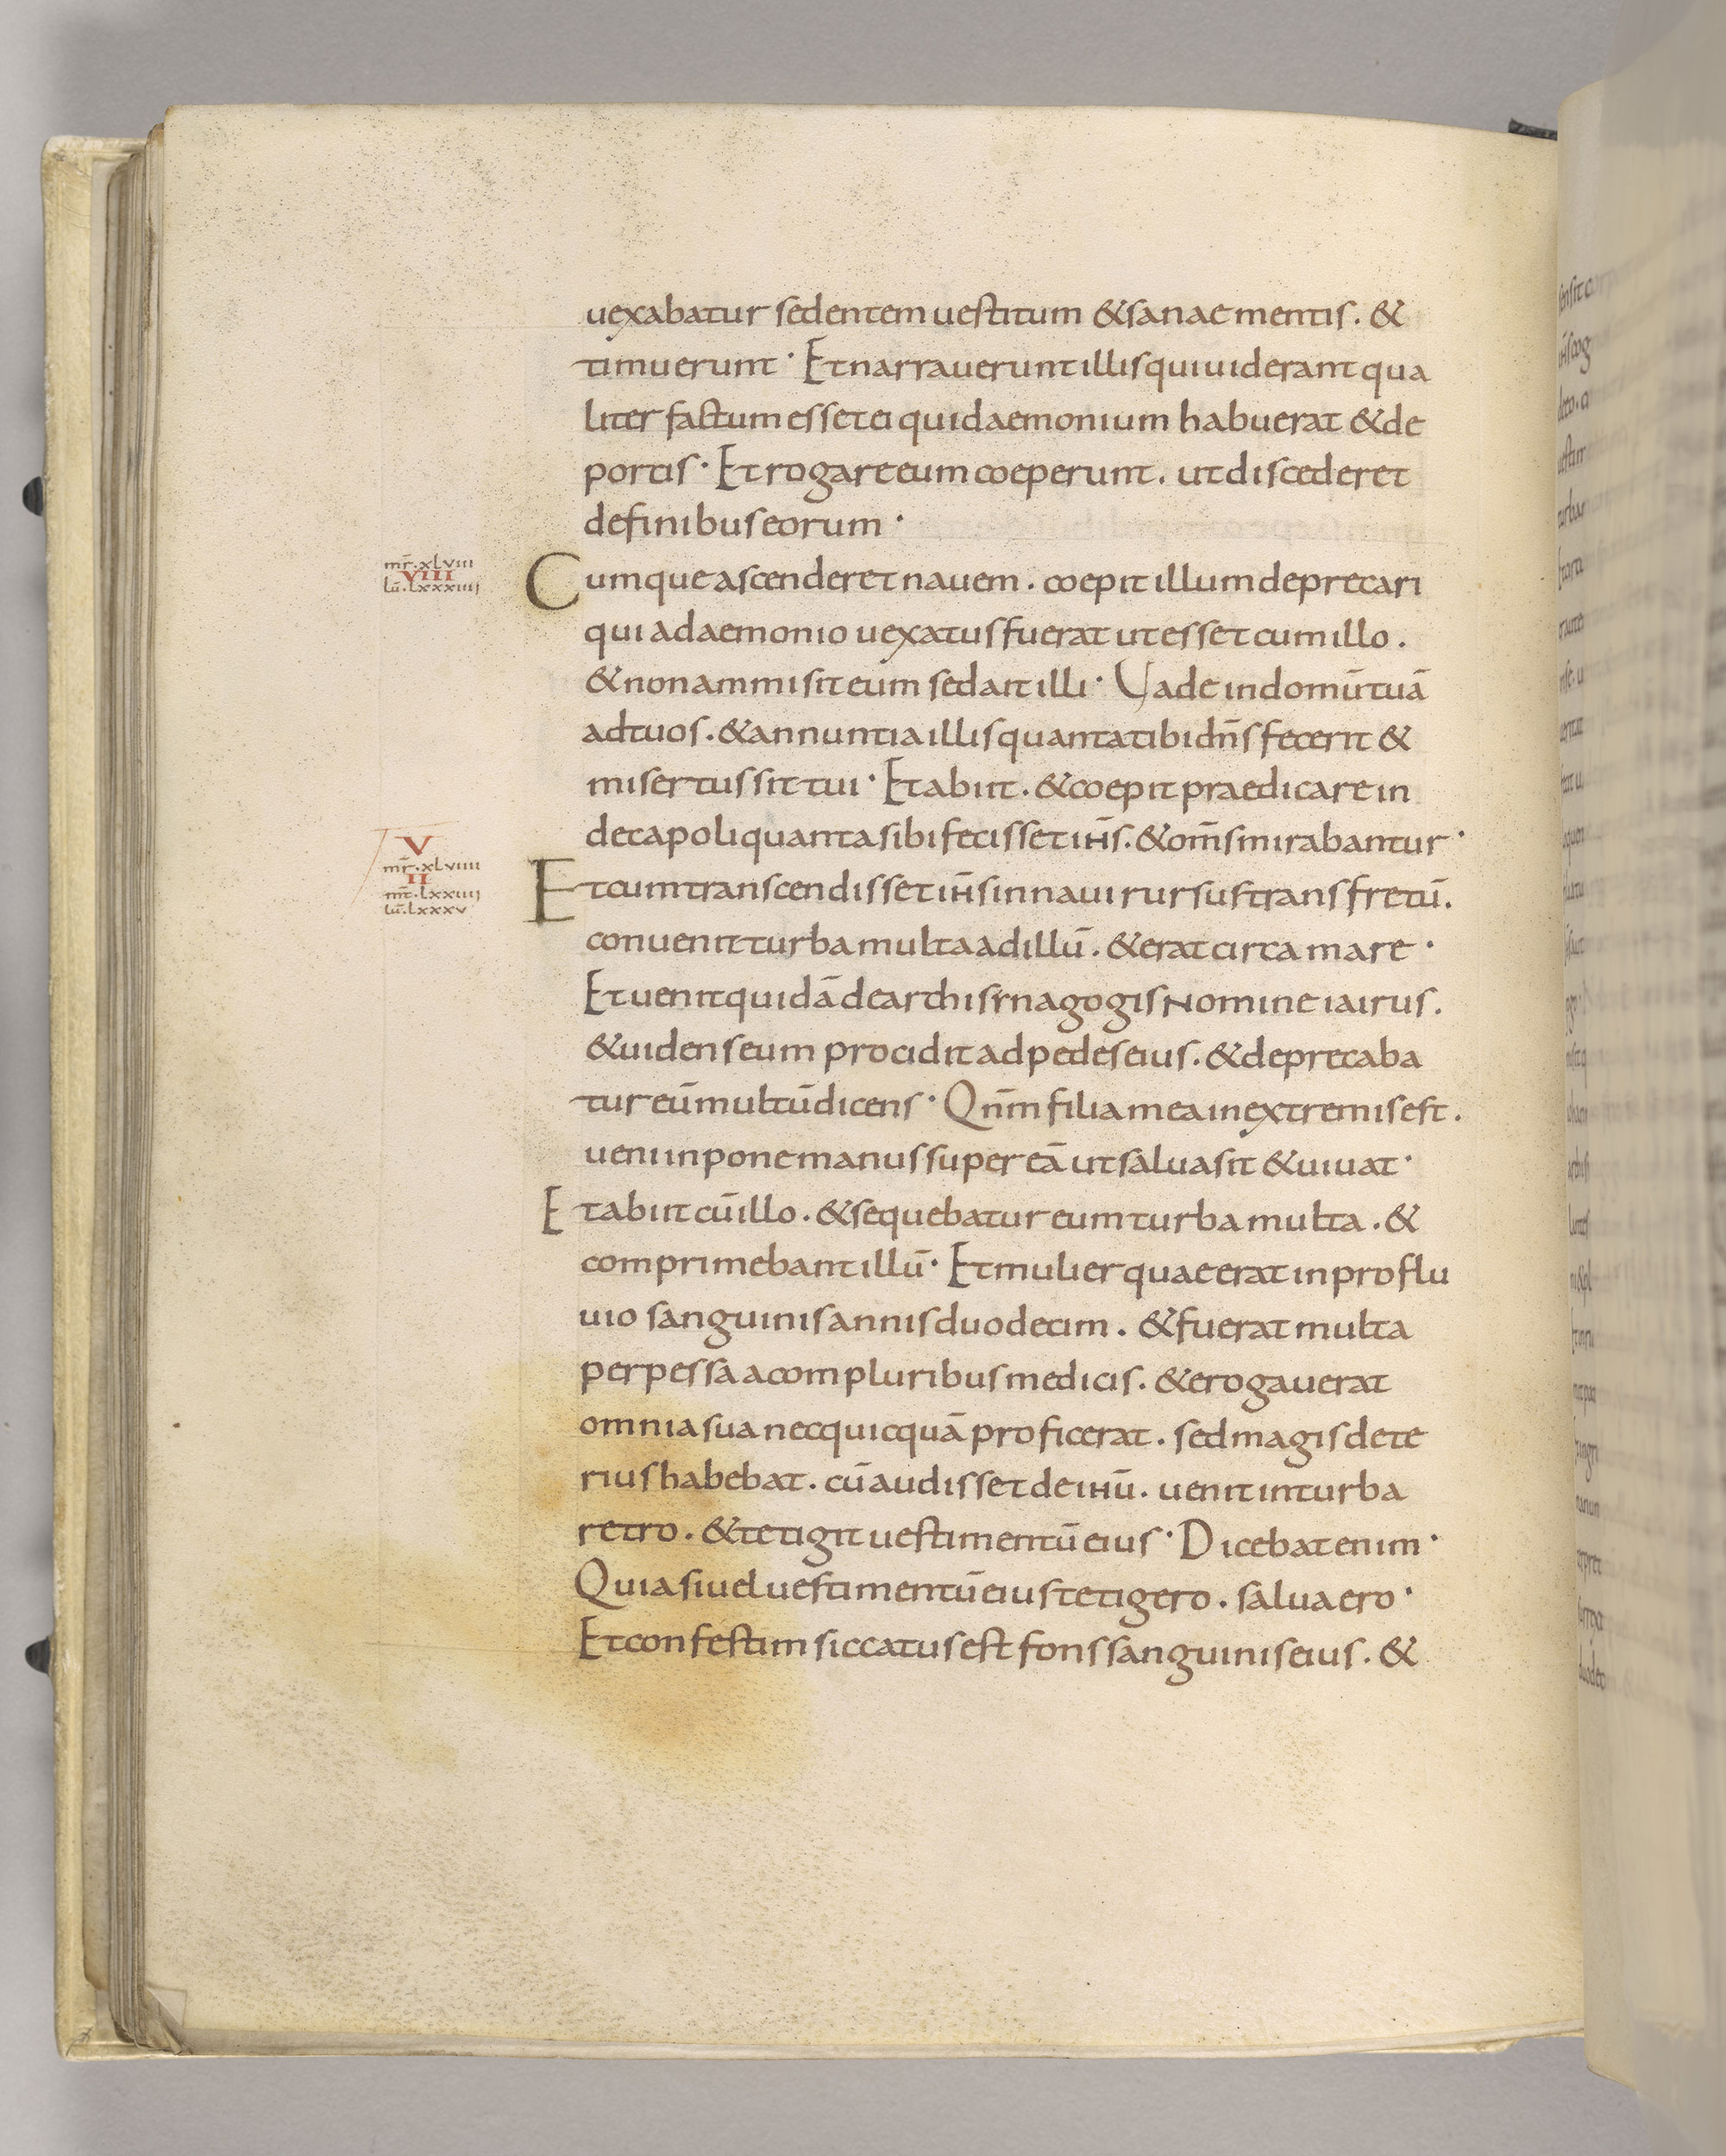 uexabatur sedentem uestitum & sanae mentis. &
timuerunt· Et narrauerunt illis qui uiderant qua
liter factum esset ei qui daemonium habuerat & de
porcis· Et rogare eum coeperunt. ut discederet
de finibus eorum·
mr̄. xlviii
VIII
lū. lxxxiiij
Cumque ascenderet nauem. coepit illum deprecari
qui a daemonio uexatus fuerat ut esset cum illo.
& non ammisit eum sed ait illi· Uade in domū tuā
ad tuos. & annuntia illis quanta tibi dn̄s fecerit &
misertus sit tui· Et abiit. & coepit praedicare in
decapoli quanta sibi fecisset ih̄s. & om̄s mirabantur·
V
mr̄. xlviiii
II
mt̄. lxxiiij
lū. lxxxv
Et cum transcendisset ih̄s in naui rursus trans fretū.
conuenit turba multa ad illū. & erat circa mare·
Et uenit quidā de archisynagogis nomine iairus.
& uidens eum procidit ad pedes eius. & depreca­ba
tur eū multū dicens· Qnm̄ filia mea in extremis est.
ueni inpone manus super eā ut salua sit & uiuat·
Et abiit cū illo. & sequebatur eum turba multa. &
comprimebant illū· Et mulier quae erat in proflu
uio sanguinis annis duodecim. & fuerat multa
perpessa a compluribus medicis. & erogauerat
omnia sua nec quicquā proficerat. sed magis dete
rius habebat. cū audisset de ihū. uenit in turba
retro. & tetigit uestimentū eius· Dicebat enim·
Quia si uel uestimentū eius tetigero. salua ero·
Et confestim siccatus est fons sanguinis eius. &